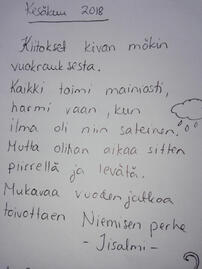 Kesäkuu 2018
Kiitokset kivan mökin
vuokrauksesta.
Kaikki toimi mainiosti,
harmi vaan, kun
ilma oli niin sateinen.
Mutta olihan aikaa sitten
piirrellä ja levätä.
Mukavaa vuoden jatkoa
toivottaen Niemisen perhe
- Iisalmi -